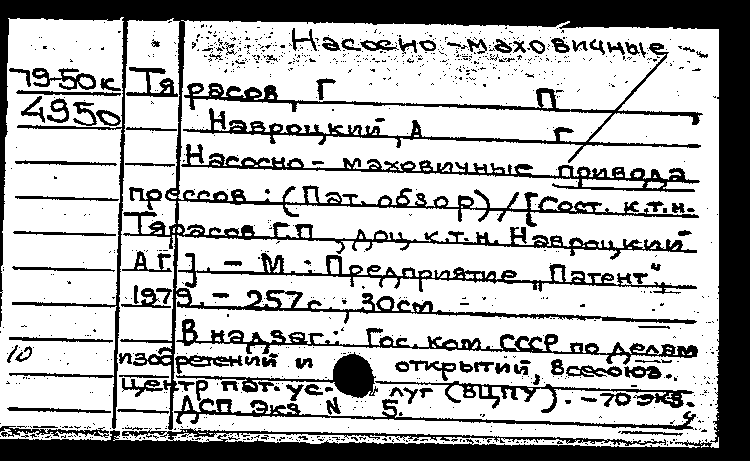 Насосно-маховичные
79-50к Тярасов, Г П,
4950 Навроцкий, А Г
Насосно-маховичные привода
прессов: (Пат. обзор) / [Сост. к.т.н.
Тярасов Г.П., доц. к.т.н. Навроцкий
А.Г.]. - М.: Предприятие "Патент",
1979. - 257 с.; 30 см.
В надзаг.: Гос. ком. СССР по делам
10 изобретений и открытий, Всесоюз.
центр пат. услуг (ВЦПУ). - 70 экз.
ДСП. Экз N 5.